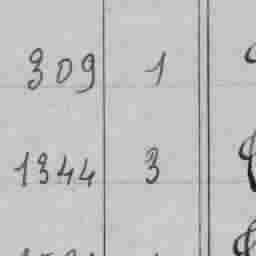 309 1
1344 3